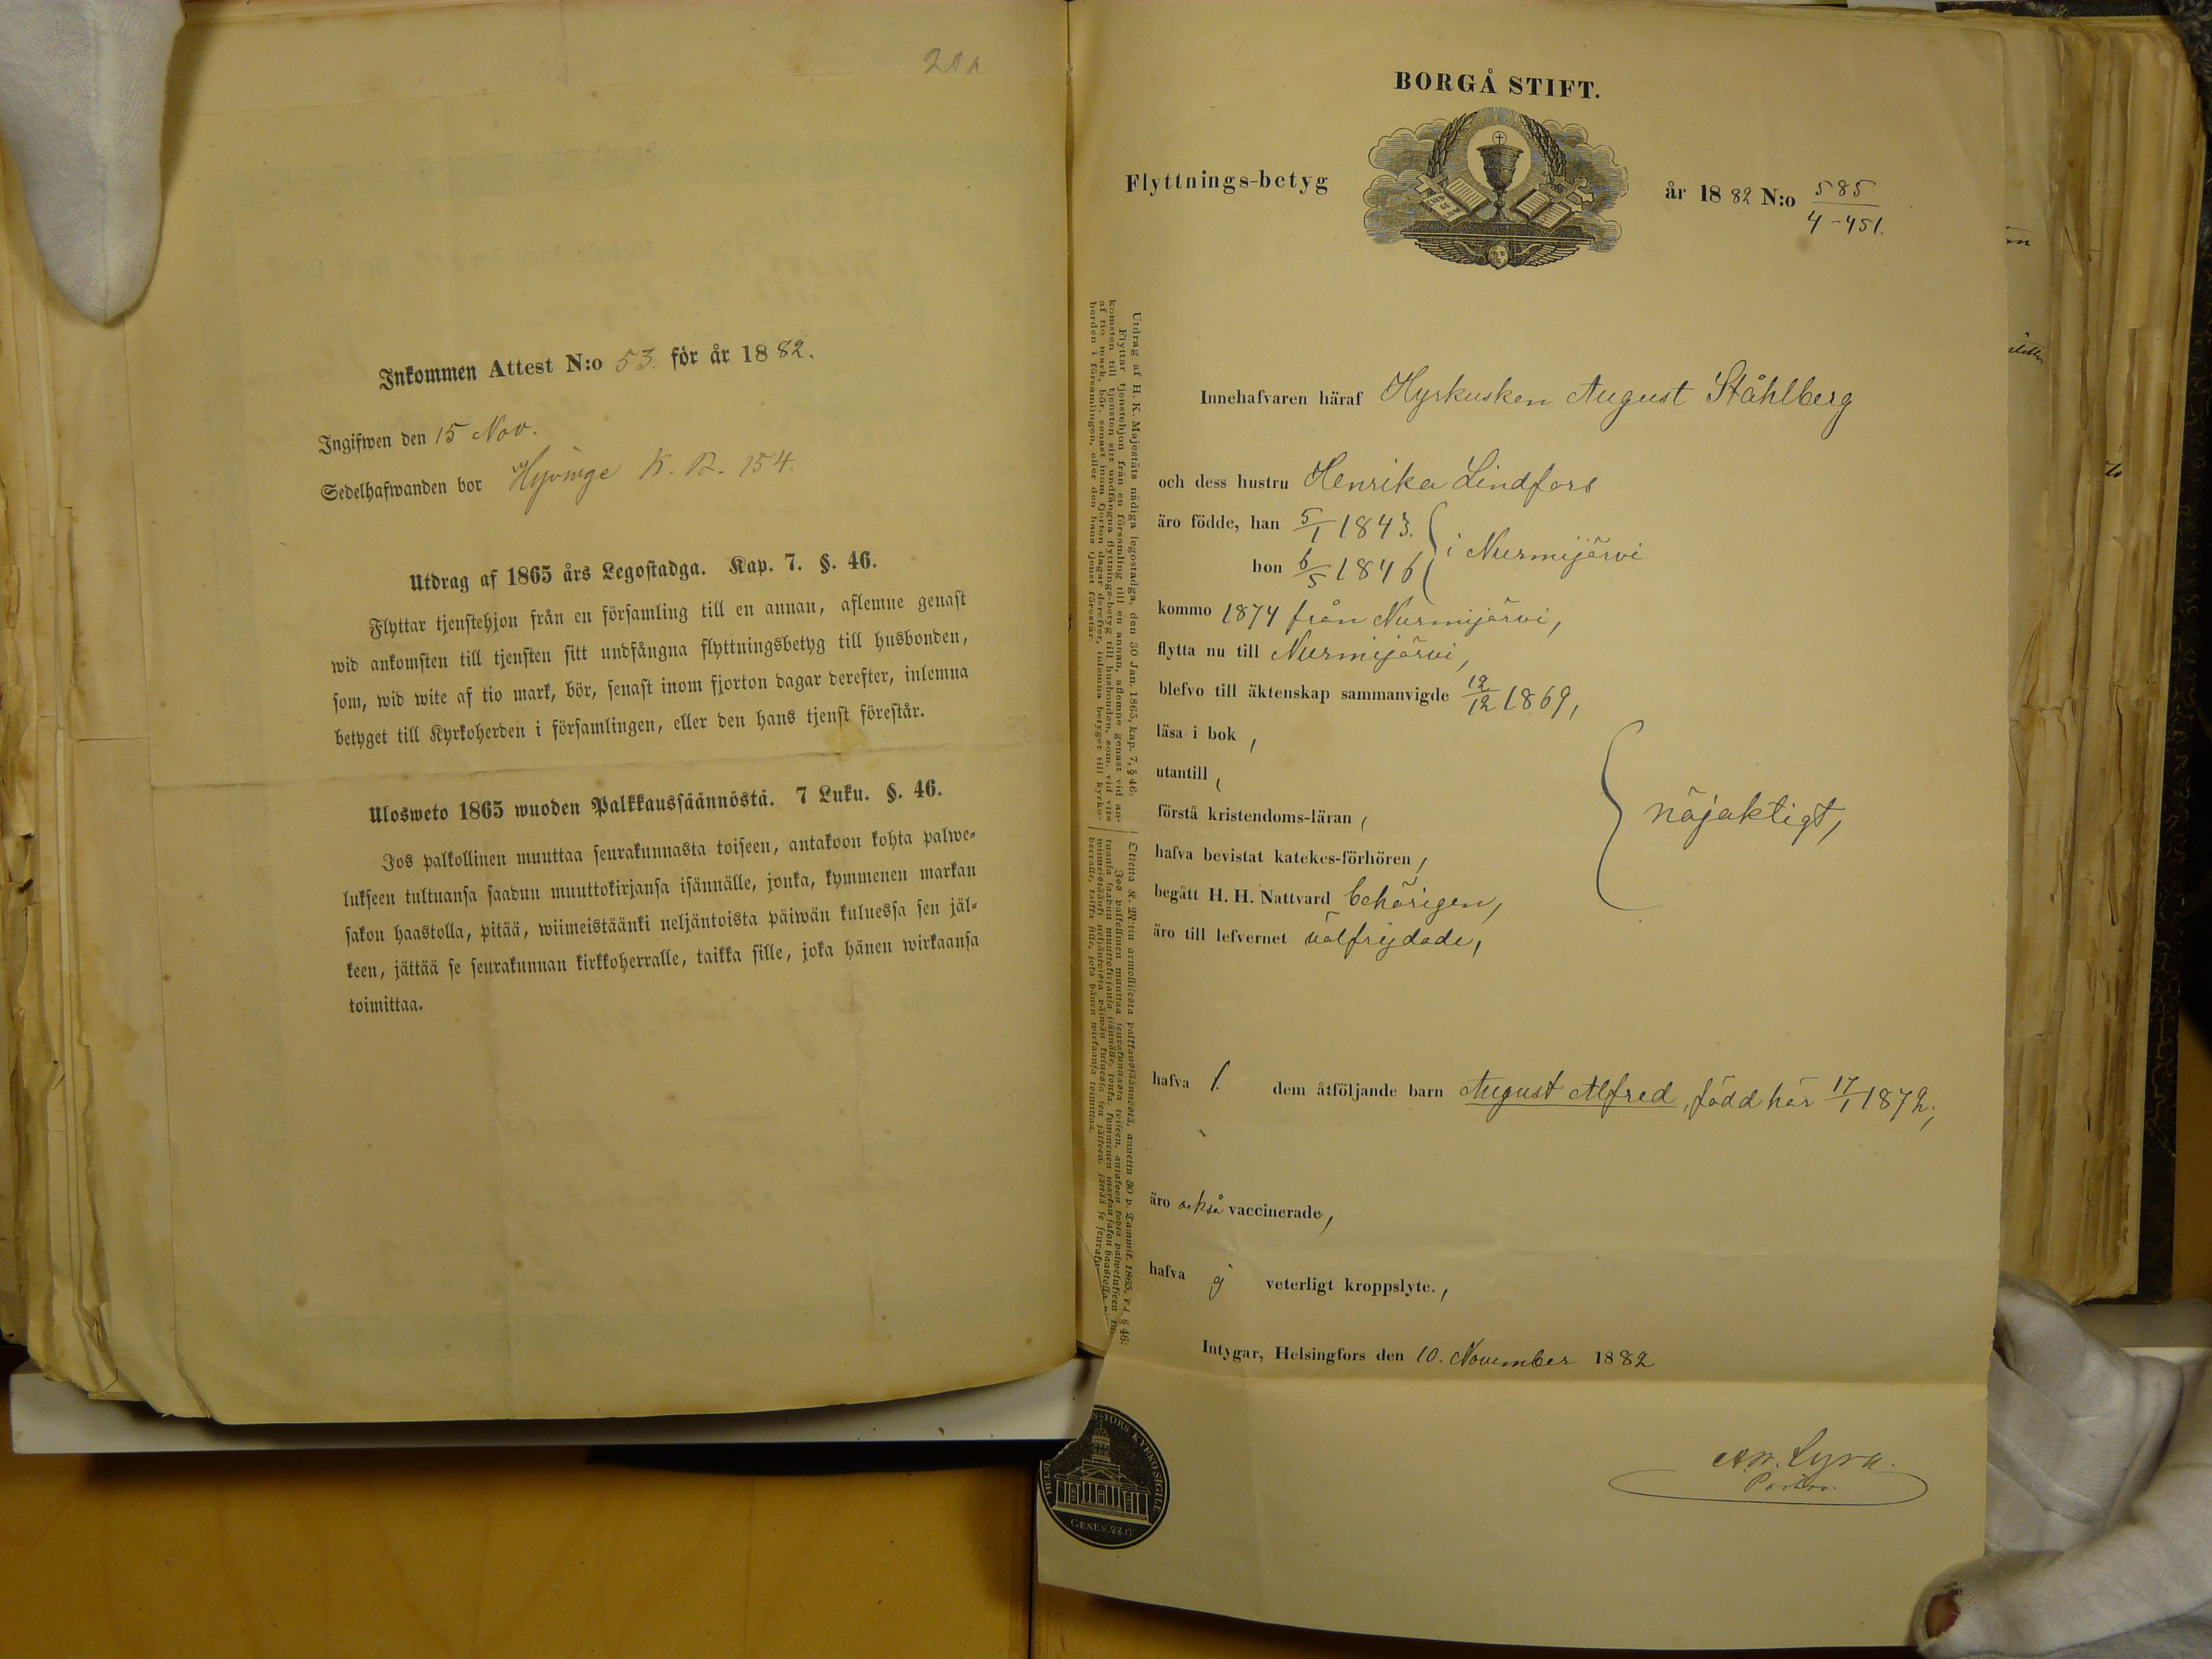 Inkommen Attest N:o 53. för år 1882.
Ingifwen den 15 Nov.
Sedelhafwanden bor Hyvinge K. B. 154.
Utdrag af 1865 års Legostadga. Kap. 7. §. 46.
Flyttar tjenstehjon från en församling till en annan, aflemne genast
wid ankomsten till tjensten sitt undfångna flyttningsbetyg till husbonden,
som, wid wite af tio mark, bör, senast inom fjorton dagar derefter, inlemna
betyget till Kyrkoherden i församlingen, eller den hans tjenst förestår.
Ulosweto 1865 wuoden Palkkaussäännöstä. 7 Luku. §. 46.
Jos palkollinen muuttaa seurakunnasta toiseen, antakoon kohta palwe-
lukseen tultuansa saadun muuttokirjansa isännälle, jonka, kymmenen markan
sakon haastolla, pitää, wiimeistäänki neljäntoista päiwän kuluessa sen jäl-
keen, jättää se seurakunnan kirkkoherralle, taikka sille, joka hänen wirkaansa
toimittaa.
BORGÅ STIFT.
Flyttnings-betyg
år 1882 N:o 585
4-451.
Utdrag af H. K. Majestäts nådiga legostadga, den 30 Jan. 1865, kap. 7, § 46:
Flyttar tjenstehjon från en församling till en annan, aflemne genast vid an-
komsten till tjensten sitt undfångna flyttnings-betyg till husbonden, som, vid vite
af tio mark, bör, senast inom fjorton dagar derefter, inlemna betyget till kyrko-
herden i församlingen, eller den hans tjenst förestår.
Innehafvaren häraf Hyrkusken August Ståhlberg
och dess hustru Henrika Lindfors
äro födde, han 5/1 1843.
hon 6/5 1846
i Nurmijärvi
kommo 1874 från Nurmijärvi,
flytta nu till Nurmijärvi,
blefvo till äktenskap sammanvigde 12/12 1869,
läsa i bok,
utantill,
förstå kristendoms-läran,
hafva bevistat katekes-förhören,
nöjaktigt,
begått H. H. Nattvard behörigen,
äro till lefvernet välfrejdade,
hafva 1. dem åtföljande barn August Alfred, född här 17/1 1872,
äro också vaccinerade,
hafva ej veterligt kroppslyte.,
Intygar, Helsingfors den 10. November 1882
Lyra.
KYRKO SIGILL
GENES. 28.17